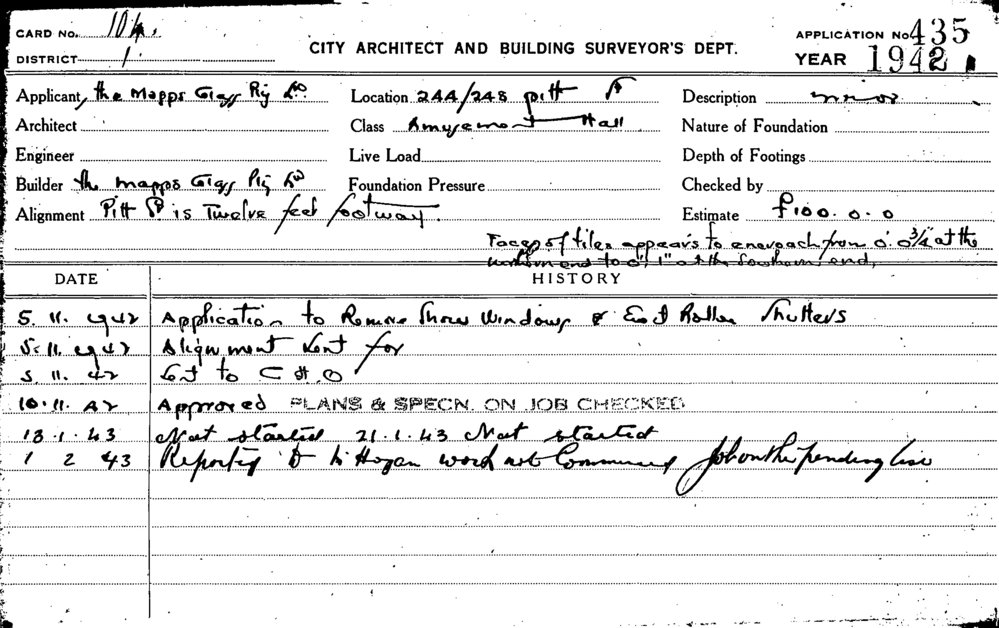 CARD No. 104.
DISTRICT 1
CITY ARCHITECT AND BUILDING SURVEYOR'S DEPT.
APPLICATION No 435
YEAR 1942
Applicant, the Mapps Glass Pty Ltd.
Location 244/248 pitt St
Description minor
Architect
Class Amusement Hall
Nature of Foundation
Engineer
Live Load
Depth of Footings
Builder the mapps Glass Pty Ltd
Foundation Pressure
Checked by
Alignment Pitt St is Twelve feet footway.
Estimate £100.0.0
Faces of tiles appears to encroach from 0'.0¾" at the
northern end to 0'.1" at the Southern end.
DATE
HISTORY
5. 11. 1942 Application to Remove Show Windows & Erect Roller Shutters
5. 11. 1942 Alignment sent for
5. 11. 42 Sent to C H O
10. 11. 42 Approved PLANS & SPECN. ON JOB CHECKED
18. 1. 43 Not started 21. 1. 43 Not started
1 2 43 Reported to Hogan work not Commenced Job on the pending list